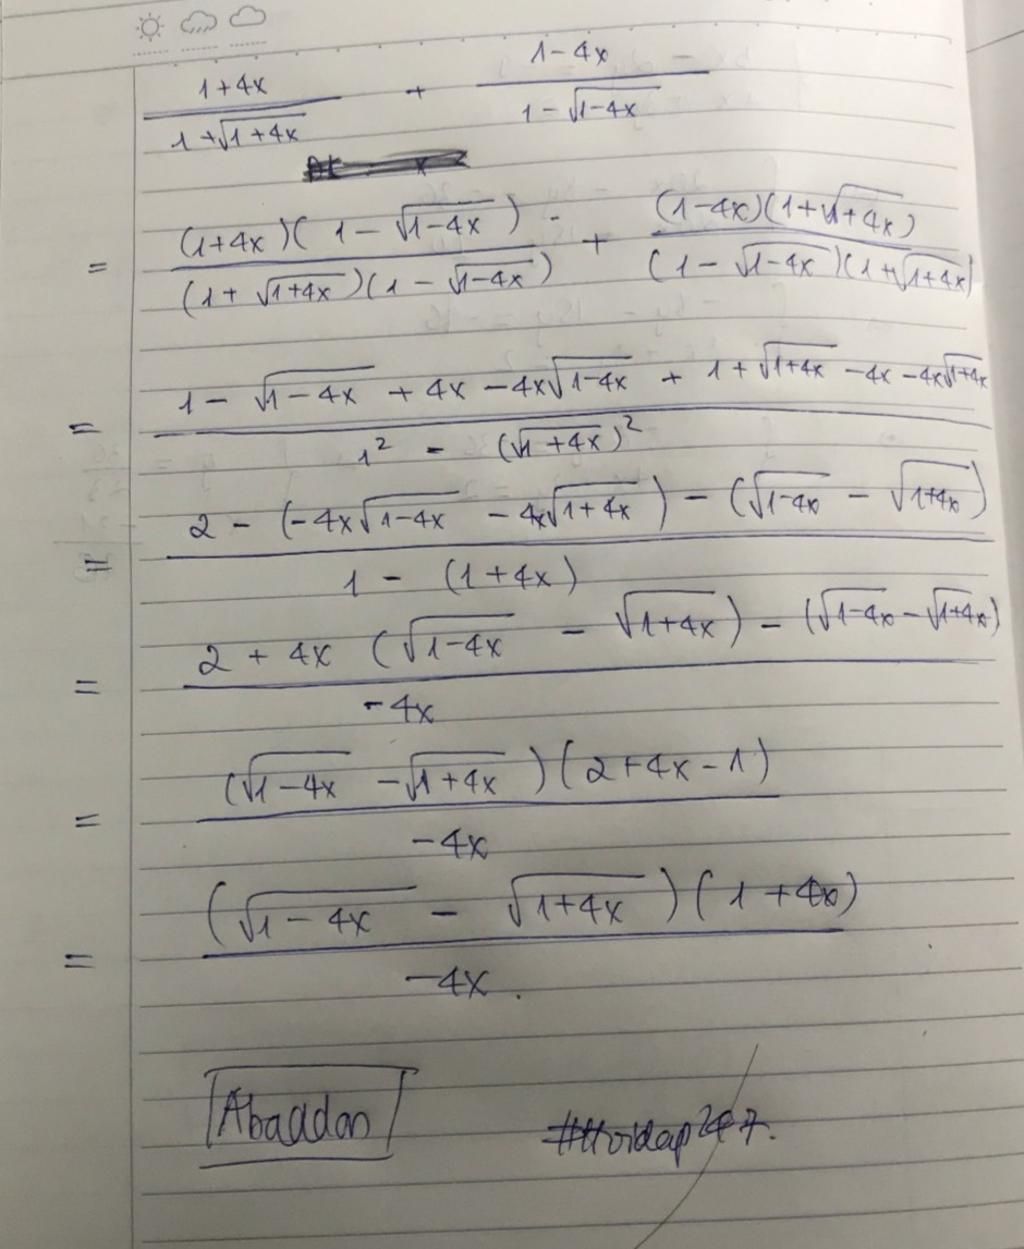 (1+4x)/(1+√(1+4x)) + (1-4x)/(1-√(1-4x))
= ((1+4x)(1-√(1-4x)))/((1+√(1+4x))(1-√(1-4x))) + ((1-4x)(1+√(1+4x)))/((1-√(1-4x))(1+√(1+4x)))
= (1-√(1-4x)+4x-4x√(1-4x)+1+√(1+4x)-4x-4x√(1+4x))/(1²-(√(1+4x))²)
= (2-(-4x√(1-4x)-4x√(1+4x))-(√(1-4x)-√(1+4x)))/(1-(1+4x))
= (2+4x(√(1-4x)-√(1+4x))-(√(1-4x)-√(1+4x)))/(-4x)
= ((√(1-4x)-√(1+4x))(2+4x-1))/(-4x)
= ((√(1-4x)-√(1+4x))(1+4x))/(-4x).
Abaddon #Hoidap247.